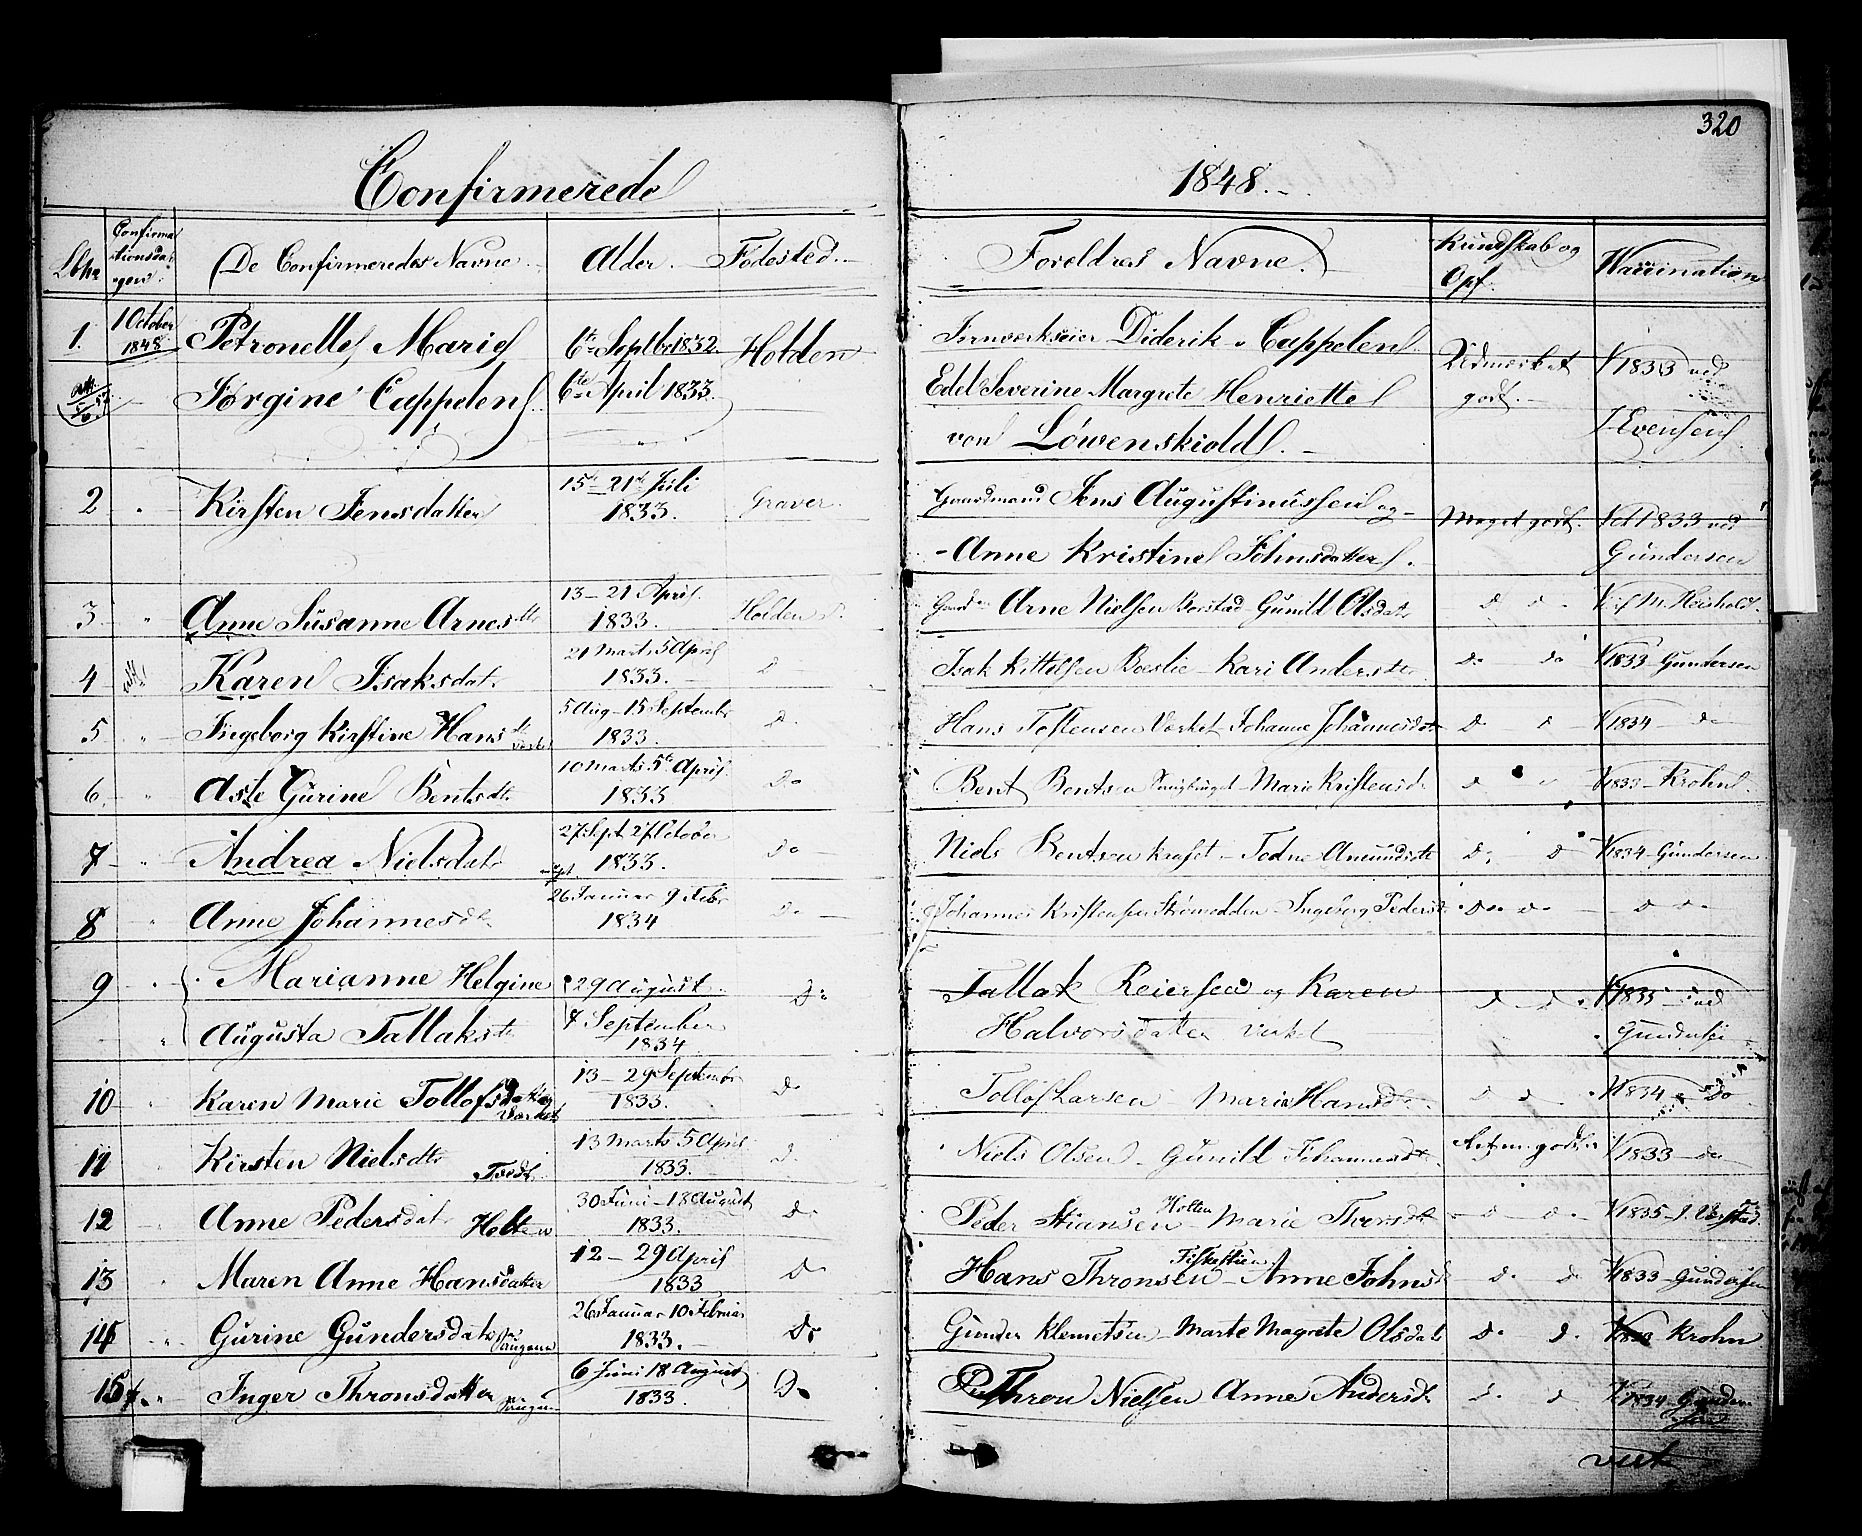 320
Confirmerede
1848.
Confirma
tionsda
gen.
De Confirmeredes Navne
Alder.
Fødested.
Foreldres Navne.
Kundskab og
Opf.
Vaccination
1. 1 October 1848 Petronelle Marie 6te Septbr 1832. Holden Jernværkseier Diderik v Cappelen Udmerket V 1833 ved
Jørgine Cappelen 6te April 1833. Edel Severine Margrete Henriette godt. J Evensen
von Løwenskiold.
2 " Kirsten Jensdatter 15 - 21 Juli 1833. Graver. Gaardmand Jens Augustinussen og Meget godt. 1833 ved
Anne Kristine Johnsdatter. Gundersen
3 " Anne Susanne Arnesdtr 13 - 21 April 1833. Holden Arne Nielsen - Gunild Olsdatr D D
4 Karen Isaksdatr 21 Marts 5 April 1833. D Isak Kittilsen Bøeslie - Kari Andersdtr Do Do V 1833 - Gundersen
5 " Ingeborg Kirstine Hansdtr Værket 5 Aug - 15 Septembr 1833. Do Hans Toftensen Værket Johanne Johannesdtr D D V 1834 - Do
6 " Aste Gurine Bentsdtr 10 Marts 5te April 1833 Do Bent Bentsen - Marie Kristensd. D " V 1833 - Krohn
7 " Andrea Nielsdatr 27 Sept. 27 October 1833. Do Niels Bentsen - Todne Amundsdtr D. D V 1834 - Gundersen
8 " Anne Johannesdtr 26 Januar 9 Febr 1834 Do Johannes Kristensen Strømodden - Ingeborg Pedersdtr Do Do D Do
9 " Marianne Helgine 29 August Do Tallak Reiersen og Karen D D V 1835 - ved
" Augusta Tallaksdtr 7 September 1834 Halvorsdatter Verket Gundersen
10 " Karen Marie Tollofsdatter Værket 13 - 29 Septembr 1833. Do Tollof Larsen Maria Hansd. D D V 1834 - Do
11 " Kirsten Nielsdtr Tvedt 13 Marts 5 April 1833. D. Niels Olsen - Gunild Johannesdtr V 1833 - do
12 " Anne Pedersdatr Holten 30 Juni - 18 August 1833. Do Peder Stiansen Holten - Marie Thorsdtr D Do V 1835 -
13 " Maren Anne Hansdatter 12 - 29 April 1833 Do Hans Thronsen - Anne Johnsd D. D. V 1833 - Gundersen
14 " Gurine Gundersdatr 26 Januar 10 Februar 1833. Do Gunder Klemetsen - Marte Magrete Olsdatr D. D. Krohn
15 " Inger Thronsdatter 6 Juni 18 August 1833. Do Thron Nielsen Anne Andersdtr D. D V 1834 - Gundersen